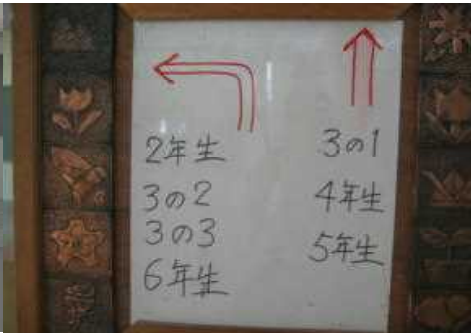 2年生
3の2
3の3
6年生
3の1
4年生
5年生